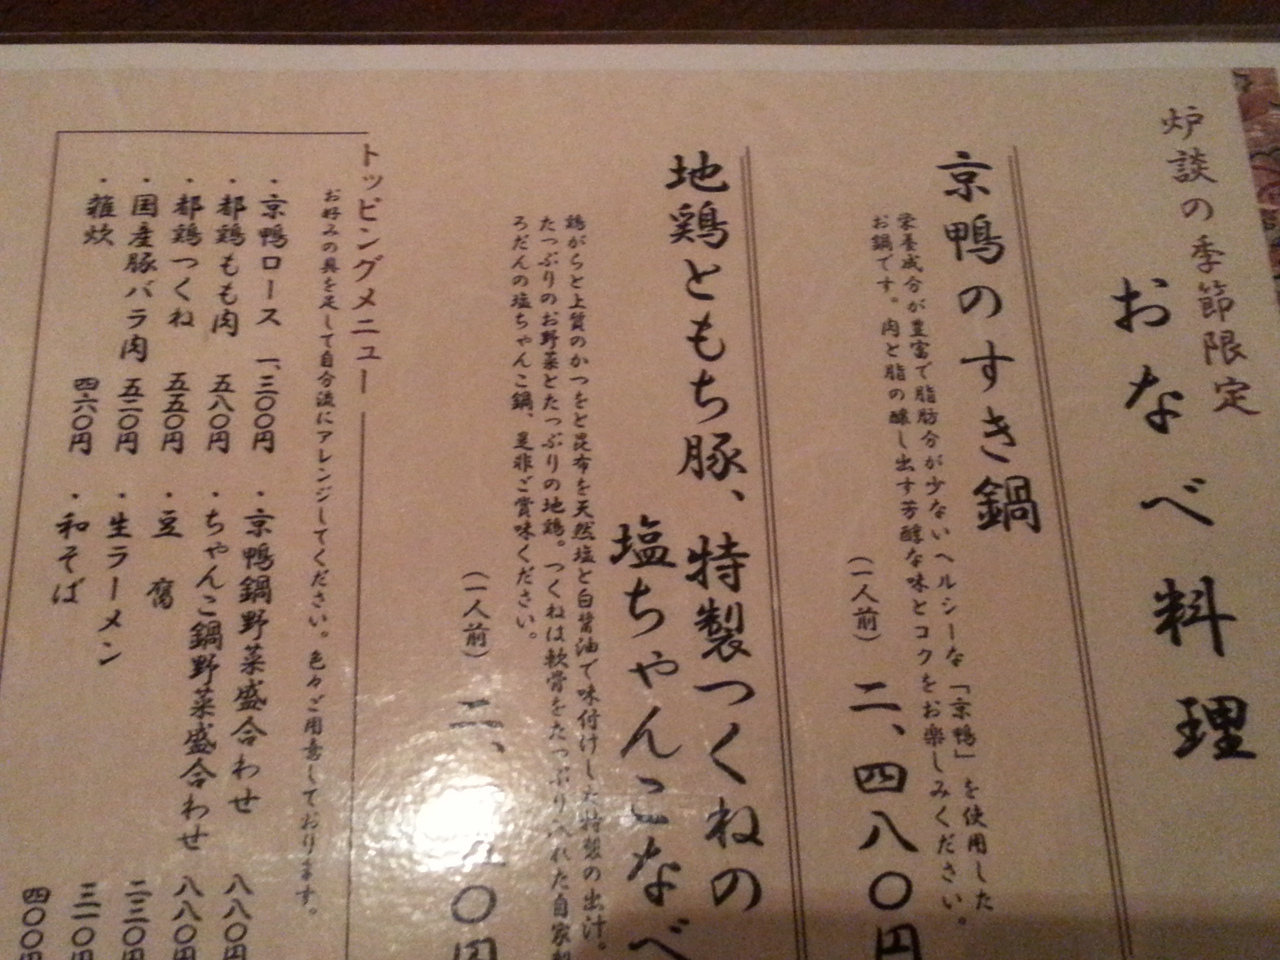 炉談の季節限定
おなべ料理
京鴨のすき鍋
栄養成分が豊富で脂肪分が少ないヘルシーな「京鴨」を使用した
お鍋です。肉と脂の醸し出す芳醇な味とコクをお楽しみください。
(一人前) 二、四八〇円
地鶏ともち豚、特製つくねの
塩ちゃんこなべ
鶏がらと上質のかつをと昆布を天然塩と白醤油で味付けした特製の出汁。
たっぷりのお野菜とたっぷりの地鶏。つくねは軟骨をたっぷり入れた自家製
ろだんの塩ちゃんこ鍋、是非ご賞味ください。
(一人前) 二、 〇円
トッピングメニュー
お好みの具を足して自分流にアレンジしてください。色々ご用意しております。
・京鴨ロース 一、三〇〇円
・都鶏もも肉 五八〇円
・都鶏つくね 五五〇円
・国産豚バラ肉 五二〇円
・雑炊 四六〇円
・京鴨鍋野菜盛合わせ 八八〇円
・ちゃんこ鍋野菜盛合わせ 八八〇円
・豆腐 二三〇円
・生ラーメン 三一〇円
・和そば 四〇〇円